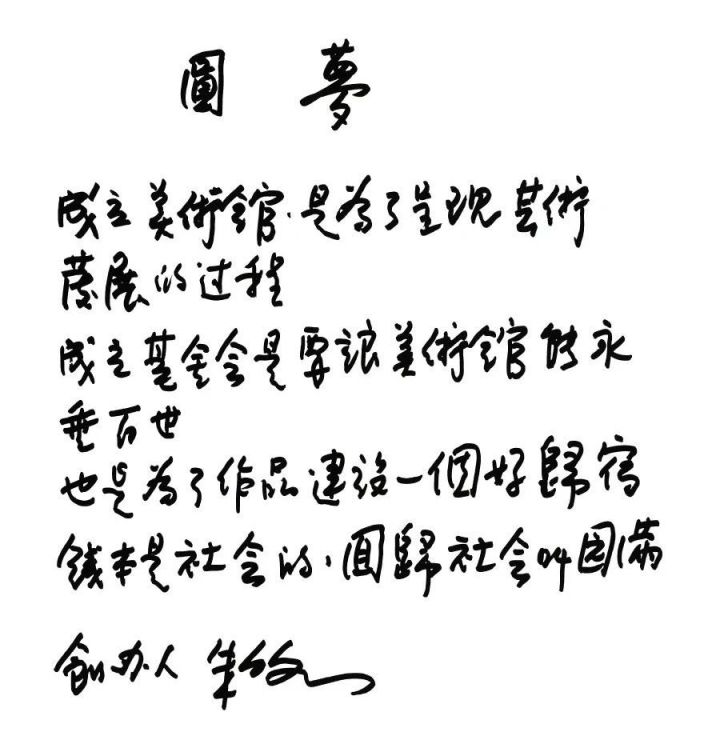 圓夢
成立美術館.是為了呈現芸術
發展的过程
成立基金会是要讓美術館能永
垂百世
也是為了作品建設一個好歸宿
錢本是社会的,回歸社会叫圆滿
創办人 朱銘